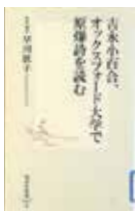 吉永小百合、
オックスフォード大学で
原爆詩を読む
早川敦子